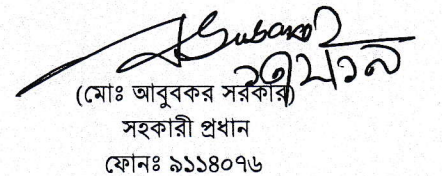 (মোঃ আবুবকর সরকার)
সহকারী প্রধান
ফোনঃ ৯১১৪০৭৬